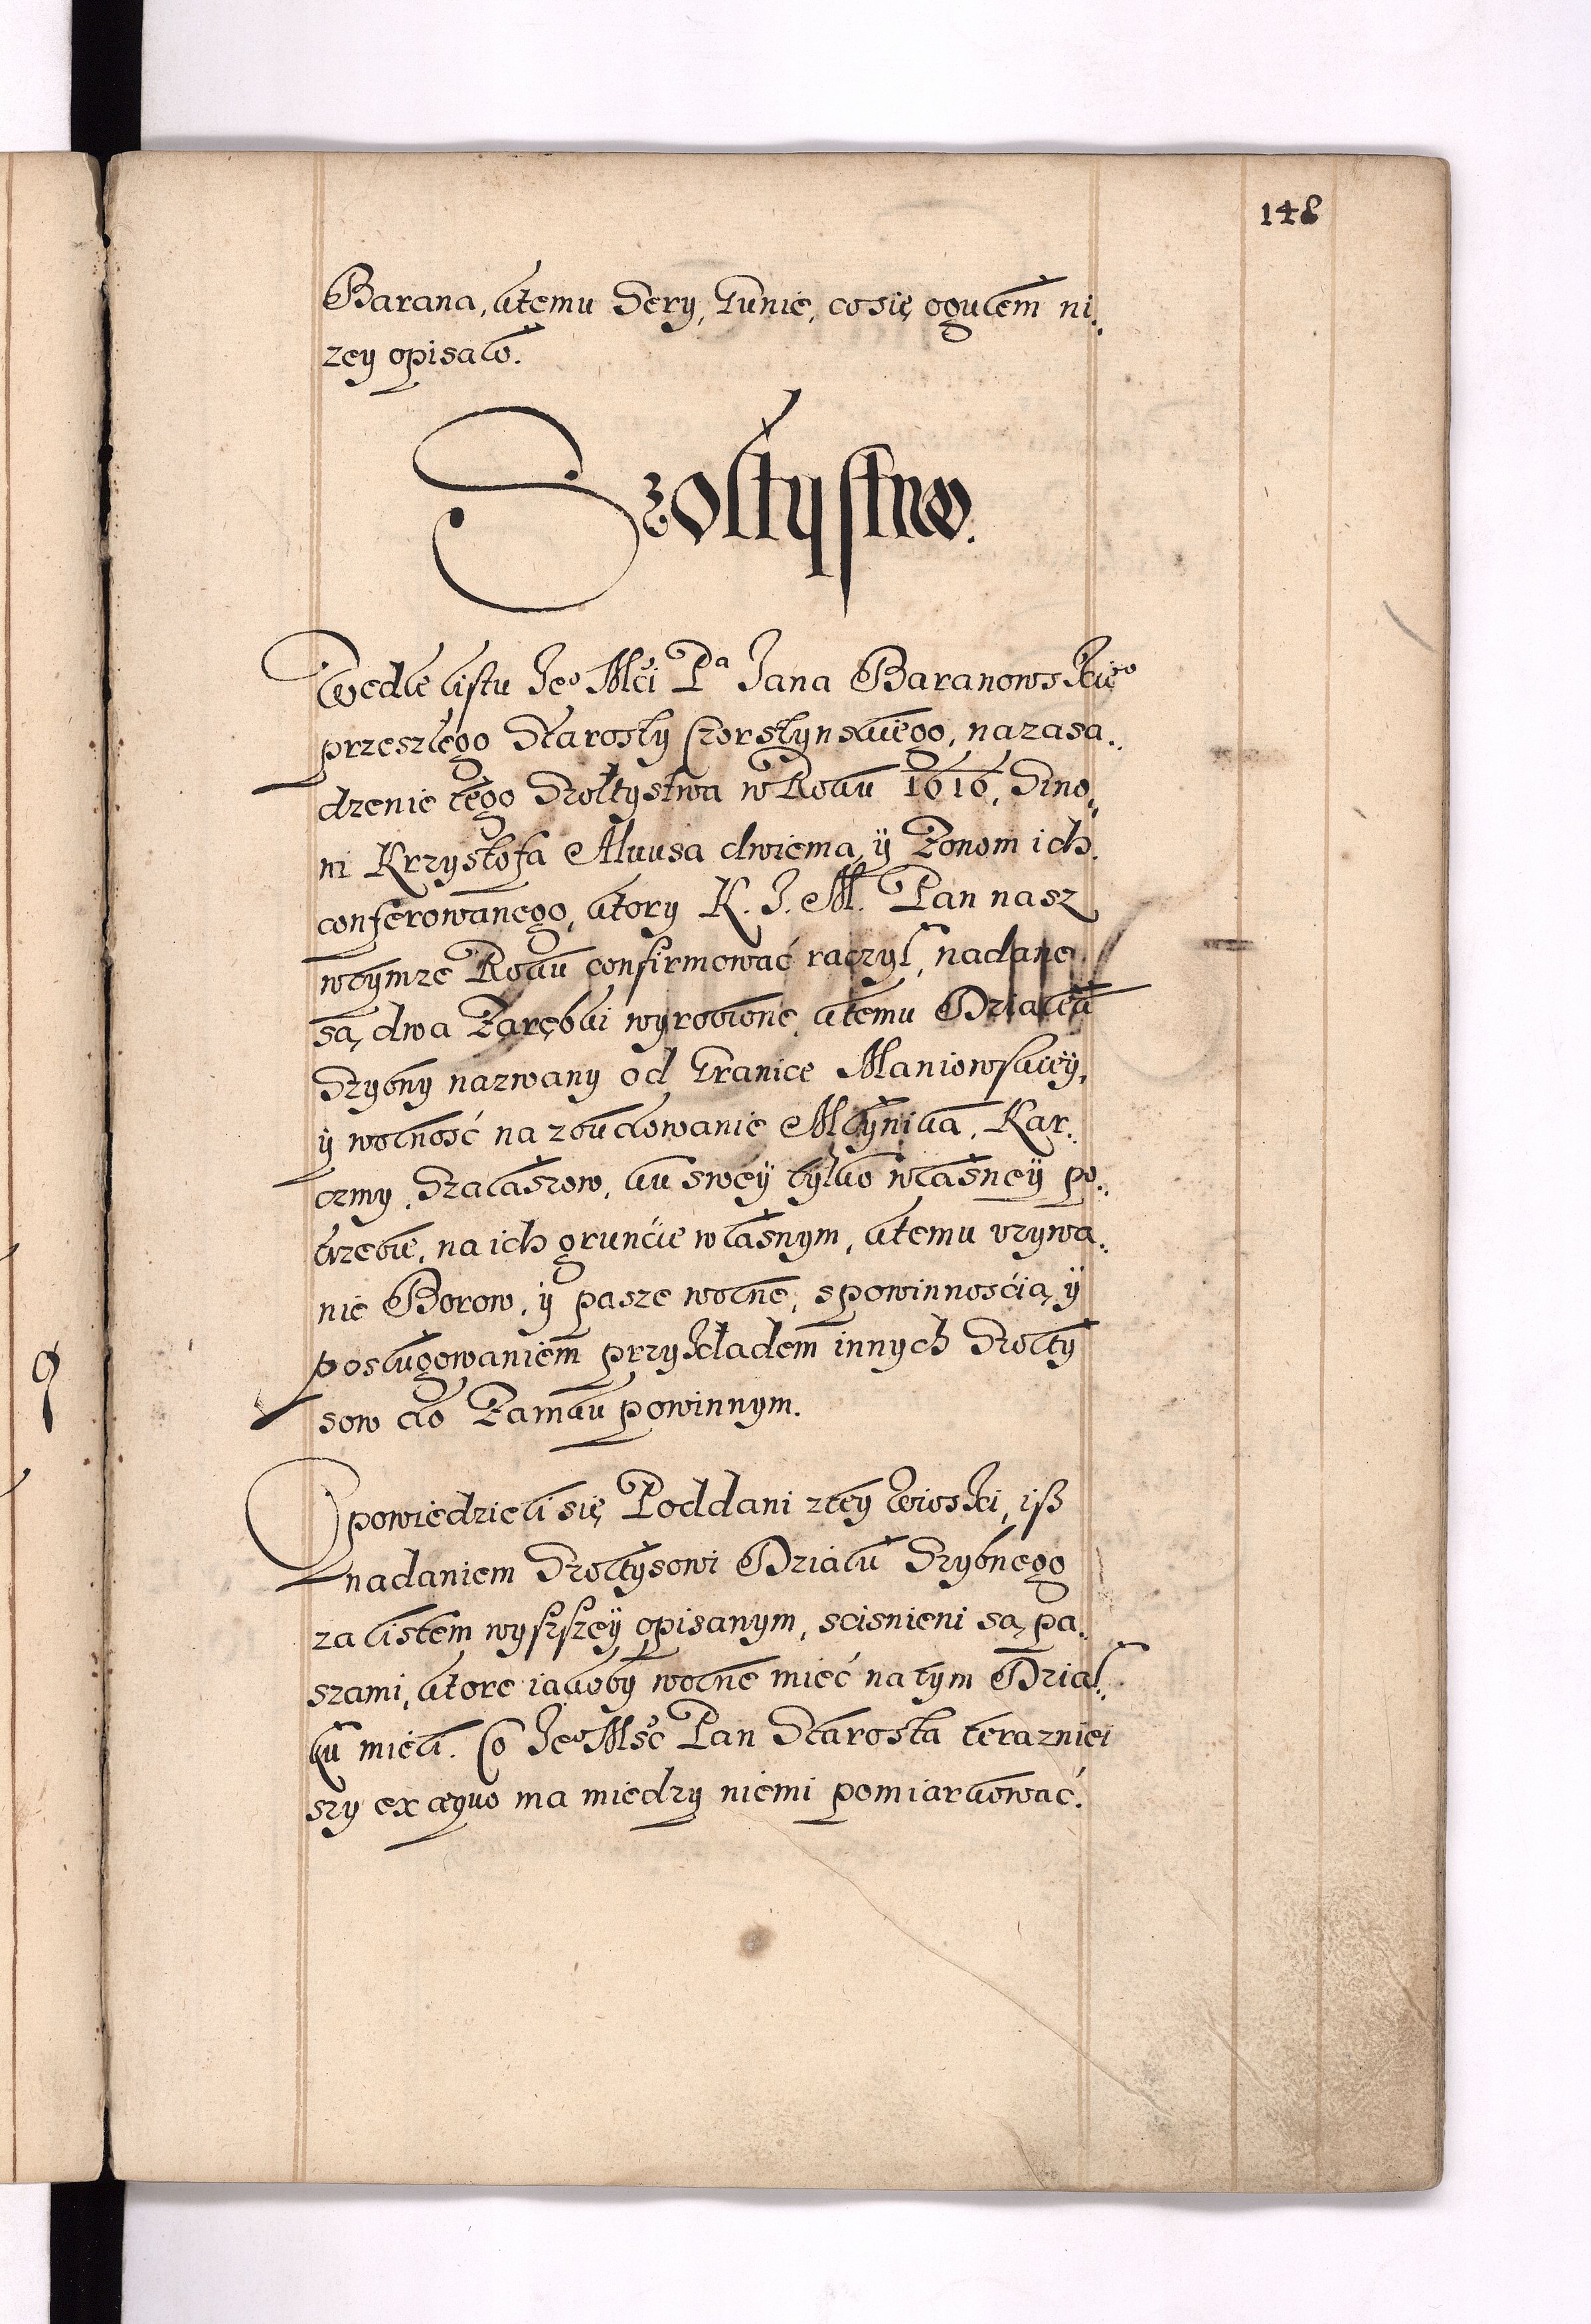 148
Barana, ktemu Sery, Gunie, co się ogułem ni:
zey opisało.
Szołtystwo.
Wedle listu Jeo Mći Pa Jana Baranowskieo
przeszłego Starosty Czorstynskiego, na zasa:
dzenie tego Szołtystwa w Roku 1616, Sino:
m Krzysztofa dwiema, ÿ Zonom ich
conferowanego, ktory K. J. M. Pan nasz
wtymze Roku confirmować raczył, nadane
są, dwa Zarębki wyrobione, ktemu Działu
Szybny nazwany od Granice Maniowskieÿ,
ÿ wolność na zbudowanie Młynika, Kar:
czmy, Szałaszow, ku sweÿ tylko własneÿ po:
trzebie, na ich grunćie własnym, ktemu vzywa:
nie Borow, ÿ pasze wolne, s powinnośćią, ÿ
posługowaniem przykładem innych Szołty
sow do Zamku powinnym.
Opowiedzieli się Poddani z tey Wioski, iß
nadaniem Szołtysowi Działu Szybnego
za listem wyszszeÿ opisanym, scisnieni są, pa:
szami, ktore iakoby wolne mieć na tym Dział:
ku mieli. Co Jeo Mść Pan Starosta terazniei
szy ex æquo ma miedzy niemi pomiarkować.